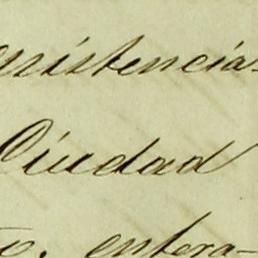 asistencia
Ciudad
to. entera-